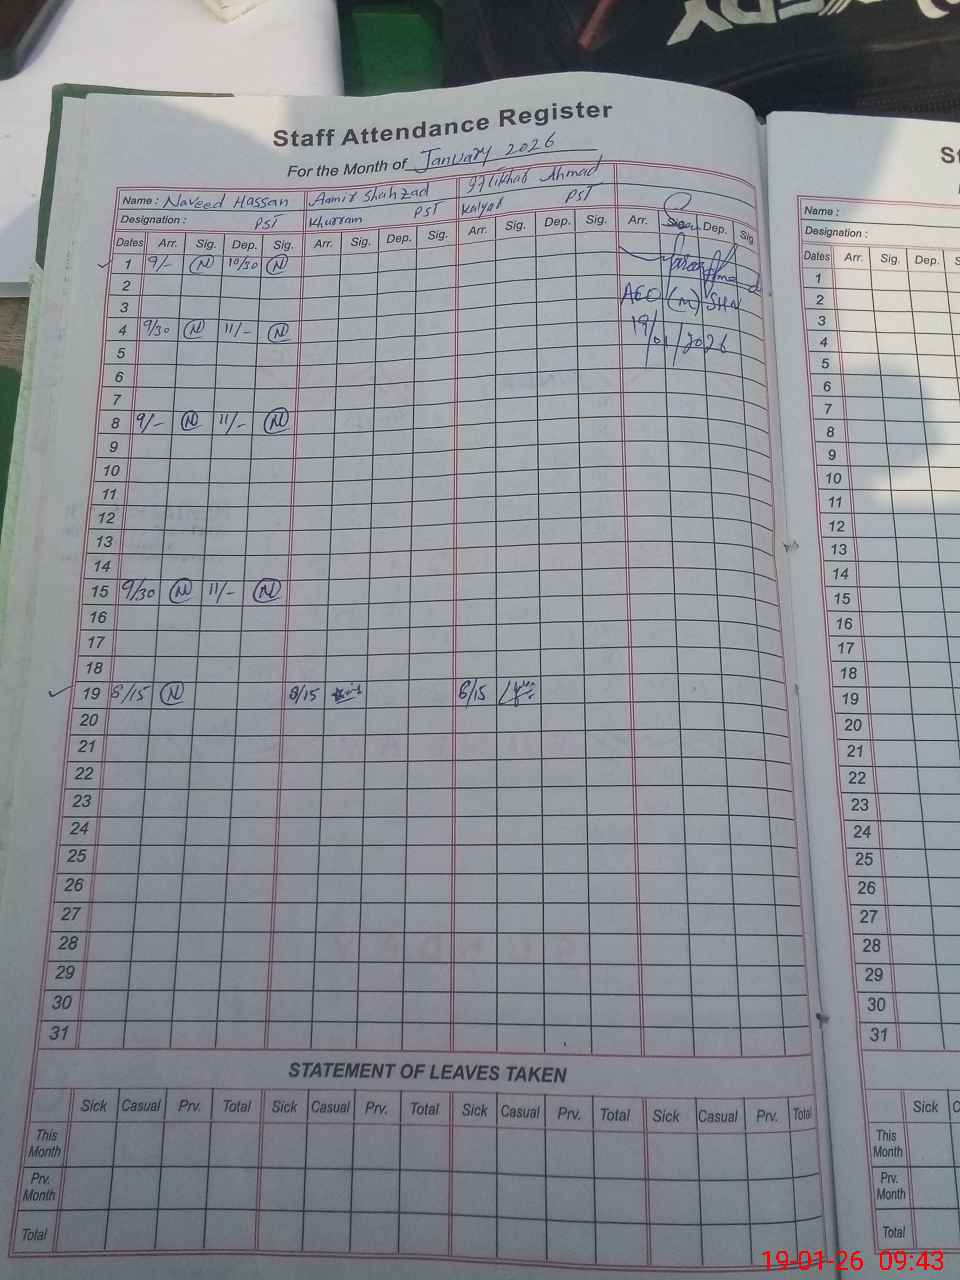 Staff Attendance Register
For the Month of January 2026
Name : Naveed Hassan Aamir Shahzad Iftikhar Ahmad
Designation : PST Khurram PST Kalyal PST
Dates Arr. Sig. Dep. Sig. Arr. Sig. Dep. Sig. Arr. Sig. Dep. Sig. Arr. Sig. Dep. Sig.
1 9/- N 10/30 N
2
3
AEO (M) SHN
4 9/30 N 11/- N
19/01/2026
5
6
7
8 9/- N 11/- N
9
10
11
12
13
14
15 9/30 N 11/- N
16
17
18
19 8/15 N 8/15 8/15
20
21
22
23
24
25
26
27
28
29
30
31
STATEMENT OF LEAVES TAKEN
Sick Casual Prv. Total Sick Casual Prv. Total Sick Casual Prv. Total Sick Casual Prv. Total
This Month
Prv. Month
Total
St
Name :
Designation :
Dates Arr. Sig. Dep. S
1
2
3
4
5
6
7
8
9
10
11
12
13
14
15
16
17
18
19
20
21
22
23
24
25
26
27
28
29
30
31
Sick C
This Month
Prv. Month
Total
19-01-26 09:43